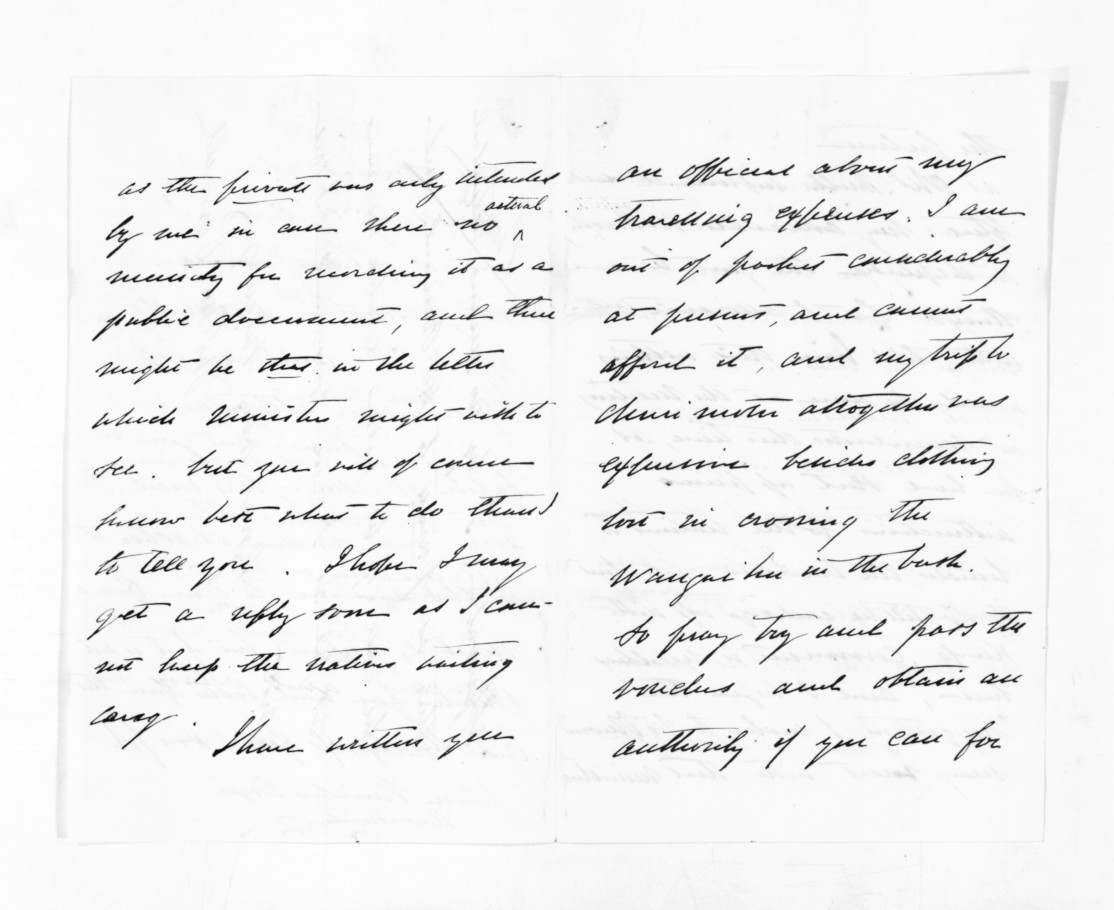 as the private was only intended
by me in case there no actual
necessity for recording it as a
public document, and there
might be that in the letter
which Minister might wish to
see. but you will of course
know best what to do than I
to tell you. I hope I may
get a reply soon as I can-
not keep the natives waiting
long.
I have written you
an official about my
travelling expenses. I am
out of pocket considerably
at present, and cannot
afford it, and my trip to
altogether was
expensive besides clothing
lost in crossing the
in the bush.
So pray try and pass the
vouchers and obtain an
authority if you can for